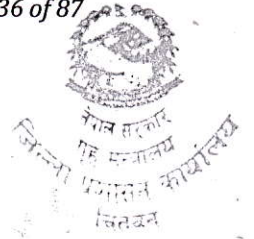 36 of 87
नेपाल सरकार
गृह मन्त्रालय
जिल्ला प्रशासन कार्यालय
चितवन